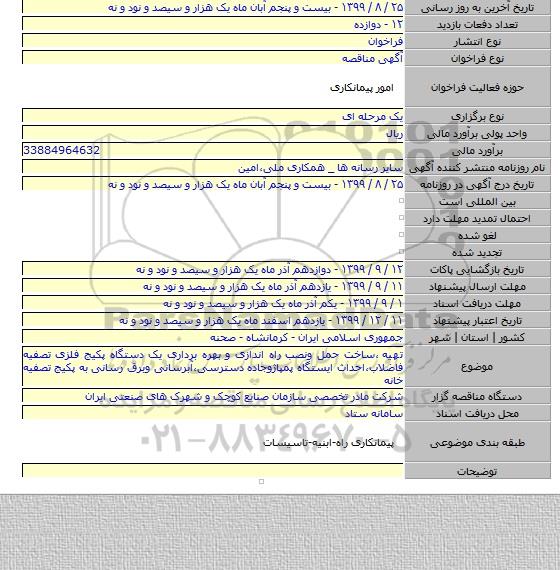 تاریخ آخرین به روز رسانی ۲۵ / ۸ / ۱۳۹۹ - بیست و پنجم آبان ماه یک هزار و سیصد و نود و نه
تعداد دفعات بازدید ۱۲ - دوازده
نوع انتشار فراخوان
نوع فراخوان آگهی مناقصه
حوزه فعالیت فراخوان امور پیمانکاری
نوع برگزاری یک مرحله ای
واحد پولی برآورد مالی ریال
برآورد مالی 33884964632
نام روزنامه منتشر کننده آگهی سایر رسانه ها _ همکاری ملی،امین
تاریخ درج آگهی در روزنامه ۲۵ / ۸ / ۱۳۹۹ - بیست و پنجم آبان ماه یک هزار و سیصد و نود و نه
بین المللی است
احتمال تمدید مهلت دارد
لغو شده
تجدید شده
تاریخ بازگشایی پاکات ۱۲ / ۹ / ۱۳۹۹ - دوازدهم آذر ماه یک هزار و سیصد و نود و نه
مهلت ارسال پیشنهاد ۱۱ / ۹ / ۱۳۹۹ - یازدهم آذر ماه یک هزار و سیصد و نود و نه
مهلت دریافت اسناد ۱ / ۹ / ۱۳۹۹ - یکم آذر ماه یک هزار و سیصد و نود و نه
تاریخ اعتبار پیشنهاد ۱۱ / ۱۲ / ۱۳۹۹ - یازدهم اسفند ماه یک هزار و سیصد و نود و نه
کشور | استان | شهر جمهوری اسلامی ایران - کرمانشاه - صحنه
موضوع تهیه ،ساخت حمل ونصب راه اندازی و بهره برداری یک دستگاه پکیج فلزی تصفیه
فاضلاب،احداث ایستگاه پمپاژوجاده دسترسی،آبرسانی وبرق رسانی به پکیج تصفیه
خانه
دستگاه مناقصه گزار شرکت مادر تخصصی سازمان صنایع کوچک و شهرک های صنعتی ایران
محل دریافت اسناد سامانه ستاد
طبقه بندی موضوعی پیمانکاری راه-ابنیه-تاسیسات
توضیحات
۰۲۱-۸۸۳۴۹۶۷۰-۵